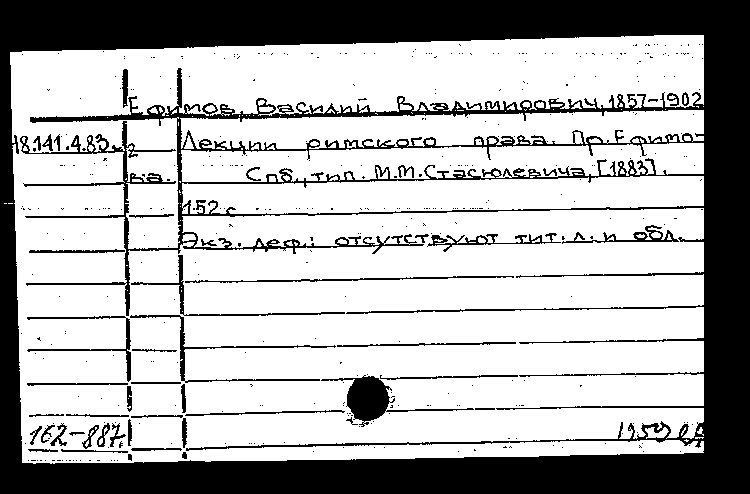 Ефимов, Василий Владимирович, 1857-1902
18.141.4.83 Лекции римского права. Пр. Ефимо-
ва. Спб., тип. М.М. Стасюлевича, [1883].
152 с
Экз. деф.: отсутствуют тит. л. и обл.
162-887. 1959